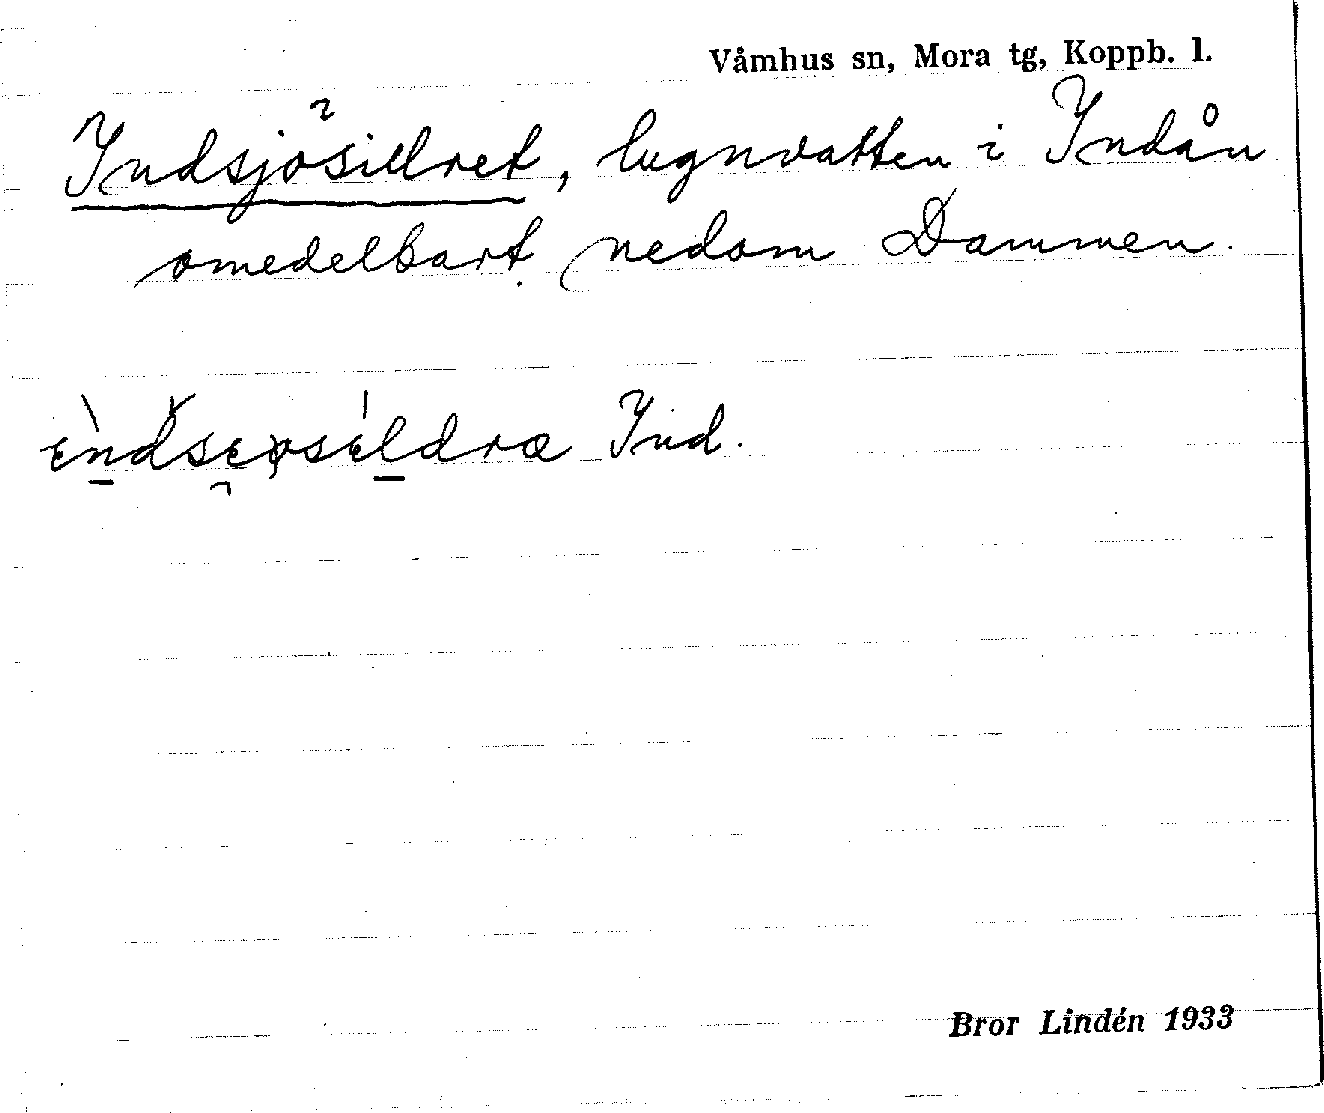 Våmhus sn, Mora tg, Koppb. l.
Indsjösillret, lugnvatten i Indån
omedelbart nedom Dammen.
Ind.
Bror Lindén 1933